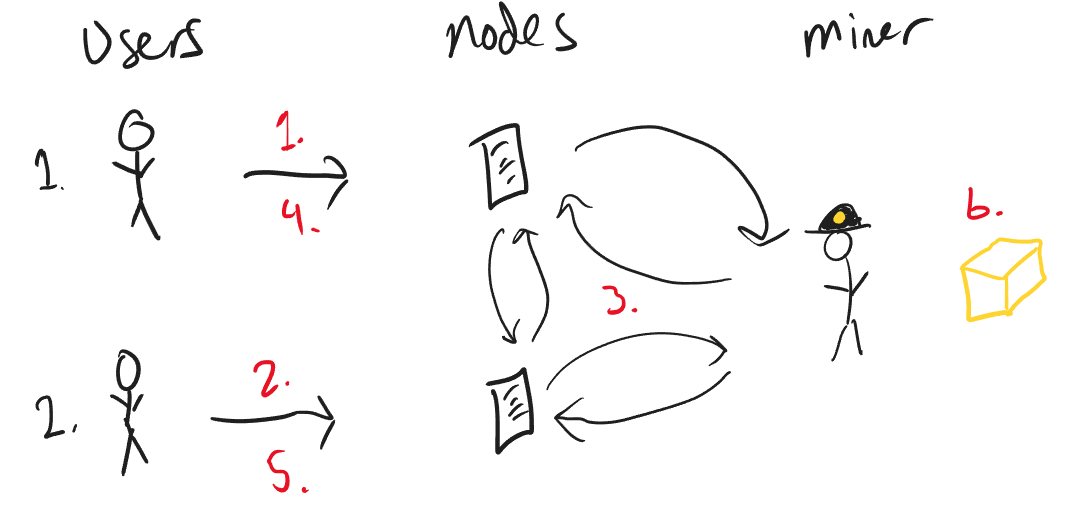 Users
nodes
miner
1.
1.
4.
3.
6.
2.
2.
5.